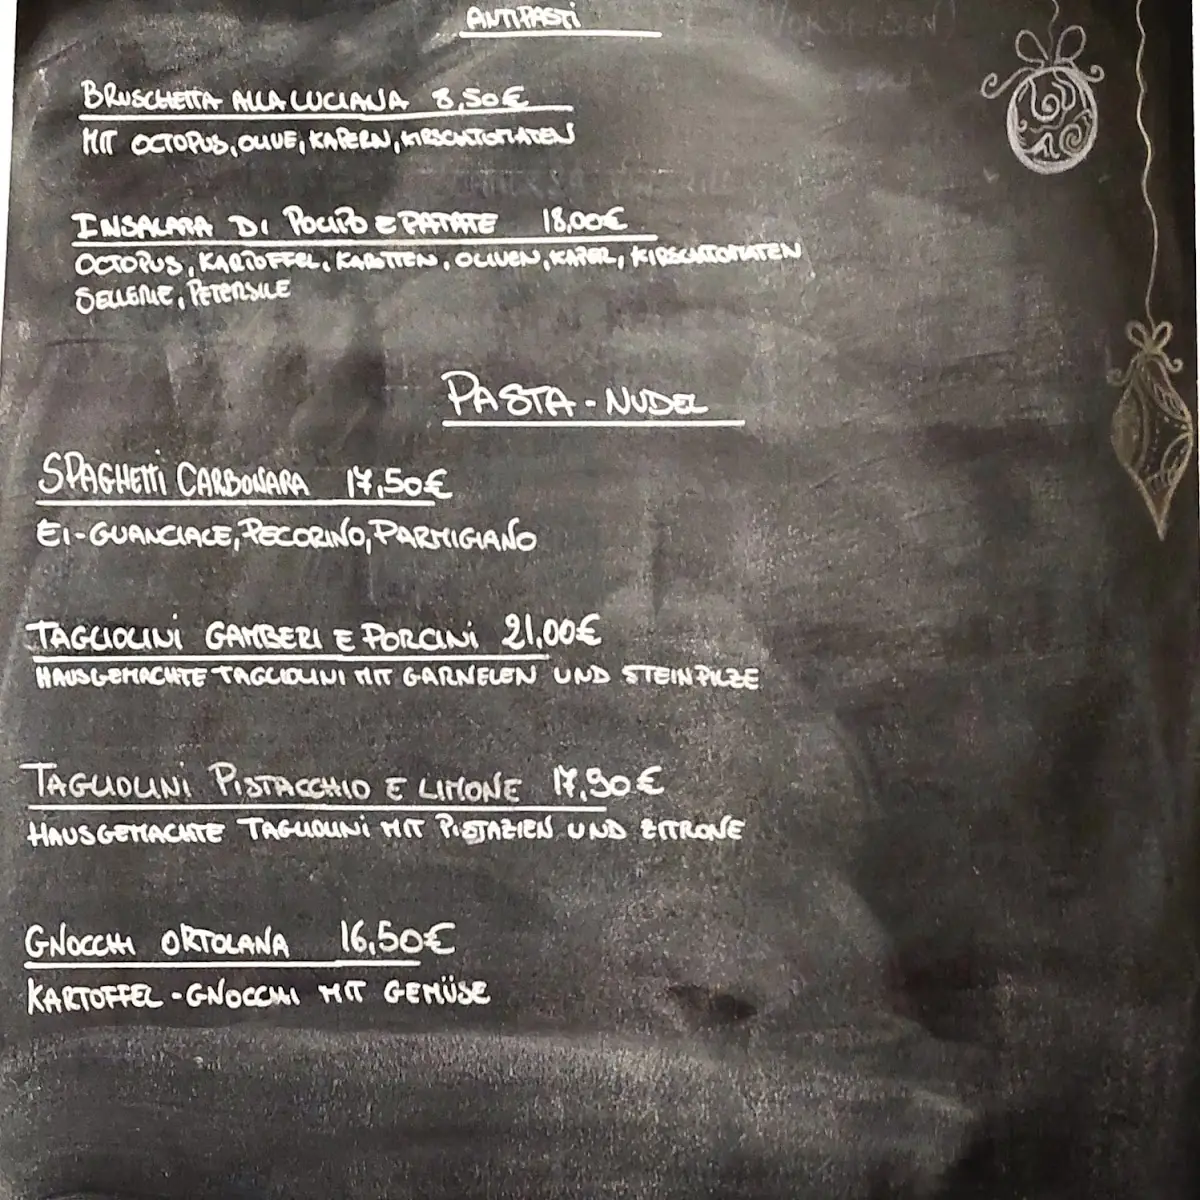 ANTIPASTI
BRUSCHETTA ALLA LUCIANA 8,50€
MIT OCTOPUS, OLIVE, KAPERN, KIRSCHTOMATEN
INSALATA DI POLIPO E PATATE 18,00€
OCTOPUS, KARTOFFEL, KAROTTEN, OLIVEN, KAPER, KIRSCHTOMATEN
SELLERIE, PETERSILE
PASTA - NUDEL
SPAGHETTI CARBONARA 17,50€
EI-GUANCIALE, PECORINO, PARMIGIANO
TAGLIOLINI GAMBERI E PORCINI 21,00€
HAUSGEMACHTE TAGLIOLINI MIT GARNELEN UND STEINPILZE
TAGLIOLINI PISTACCHIO E LIMONE 17,90€
HAUSGEMACHTE TAGLIOLINI MIT PISTAZIEN UND ZITRONE
GNOCCHI ORTOLANA 16,50€
KARTOFFEL-GNOCCHI MIT GEMÜSE